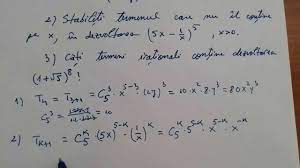 2) Stabiliți termenul care nu îl conține
pe x, în dezvoltarea (5x - 1/x)⁵, x>0.
3) Câți termeni iraționali conține dezvoltarea
(1+√3)⁸ ?
1) T₄ = T₃₊₁ = C₅³ · x⁵⁻³ · (2y)³ = 10 · x² · 8y³ = 80x²y³
C₅³ = = 10
2) Tₖ₊₁ = C₅ᵏ · (5x)⁵⁻ᵏ · (1/x)ᵏ = C₅ᵏ · 5⁵⁻ᵏ · x⁵⁻ᵏ · x⁻ᵏ